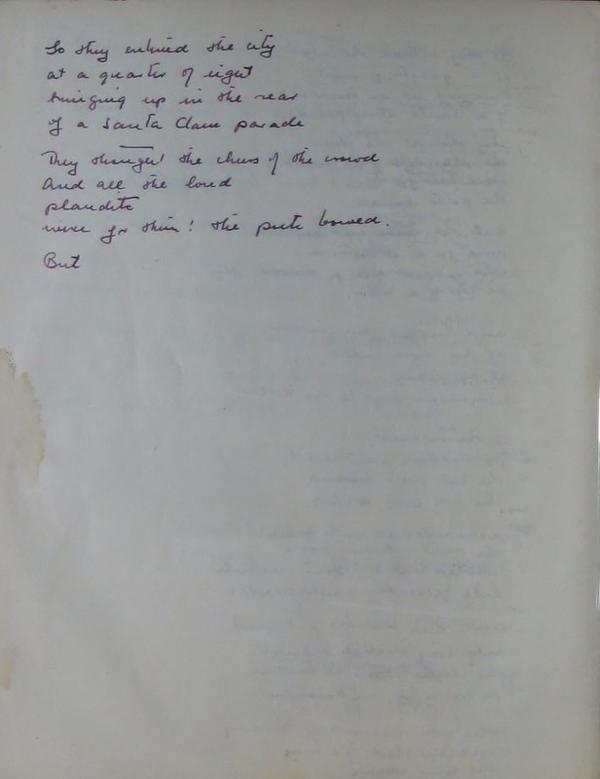 So they entered the city
at a quarter of eight
bringing up in the rear
of a Santa Claus parade
They thought the cheers of the crowd
And all the loud
plaudits
were for them! the poets bowed.
But